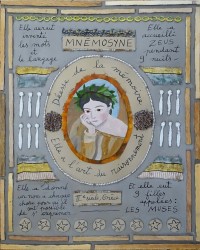 Elle aurait
inventé
les mots
et le langage
MNEMOSYNE
Elle a
accueilli
ZEUS
pendant
9 nuits..
Déesse de la mémoire
Elle a l'art du raisonnement
Elle a donné
un nom à chaque
chose pour qu'il
soit possible
de s'exprimer
Et elle eut
9 filles
appelées:
LES MUSES